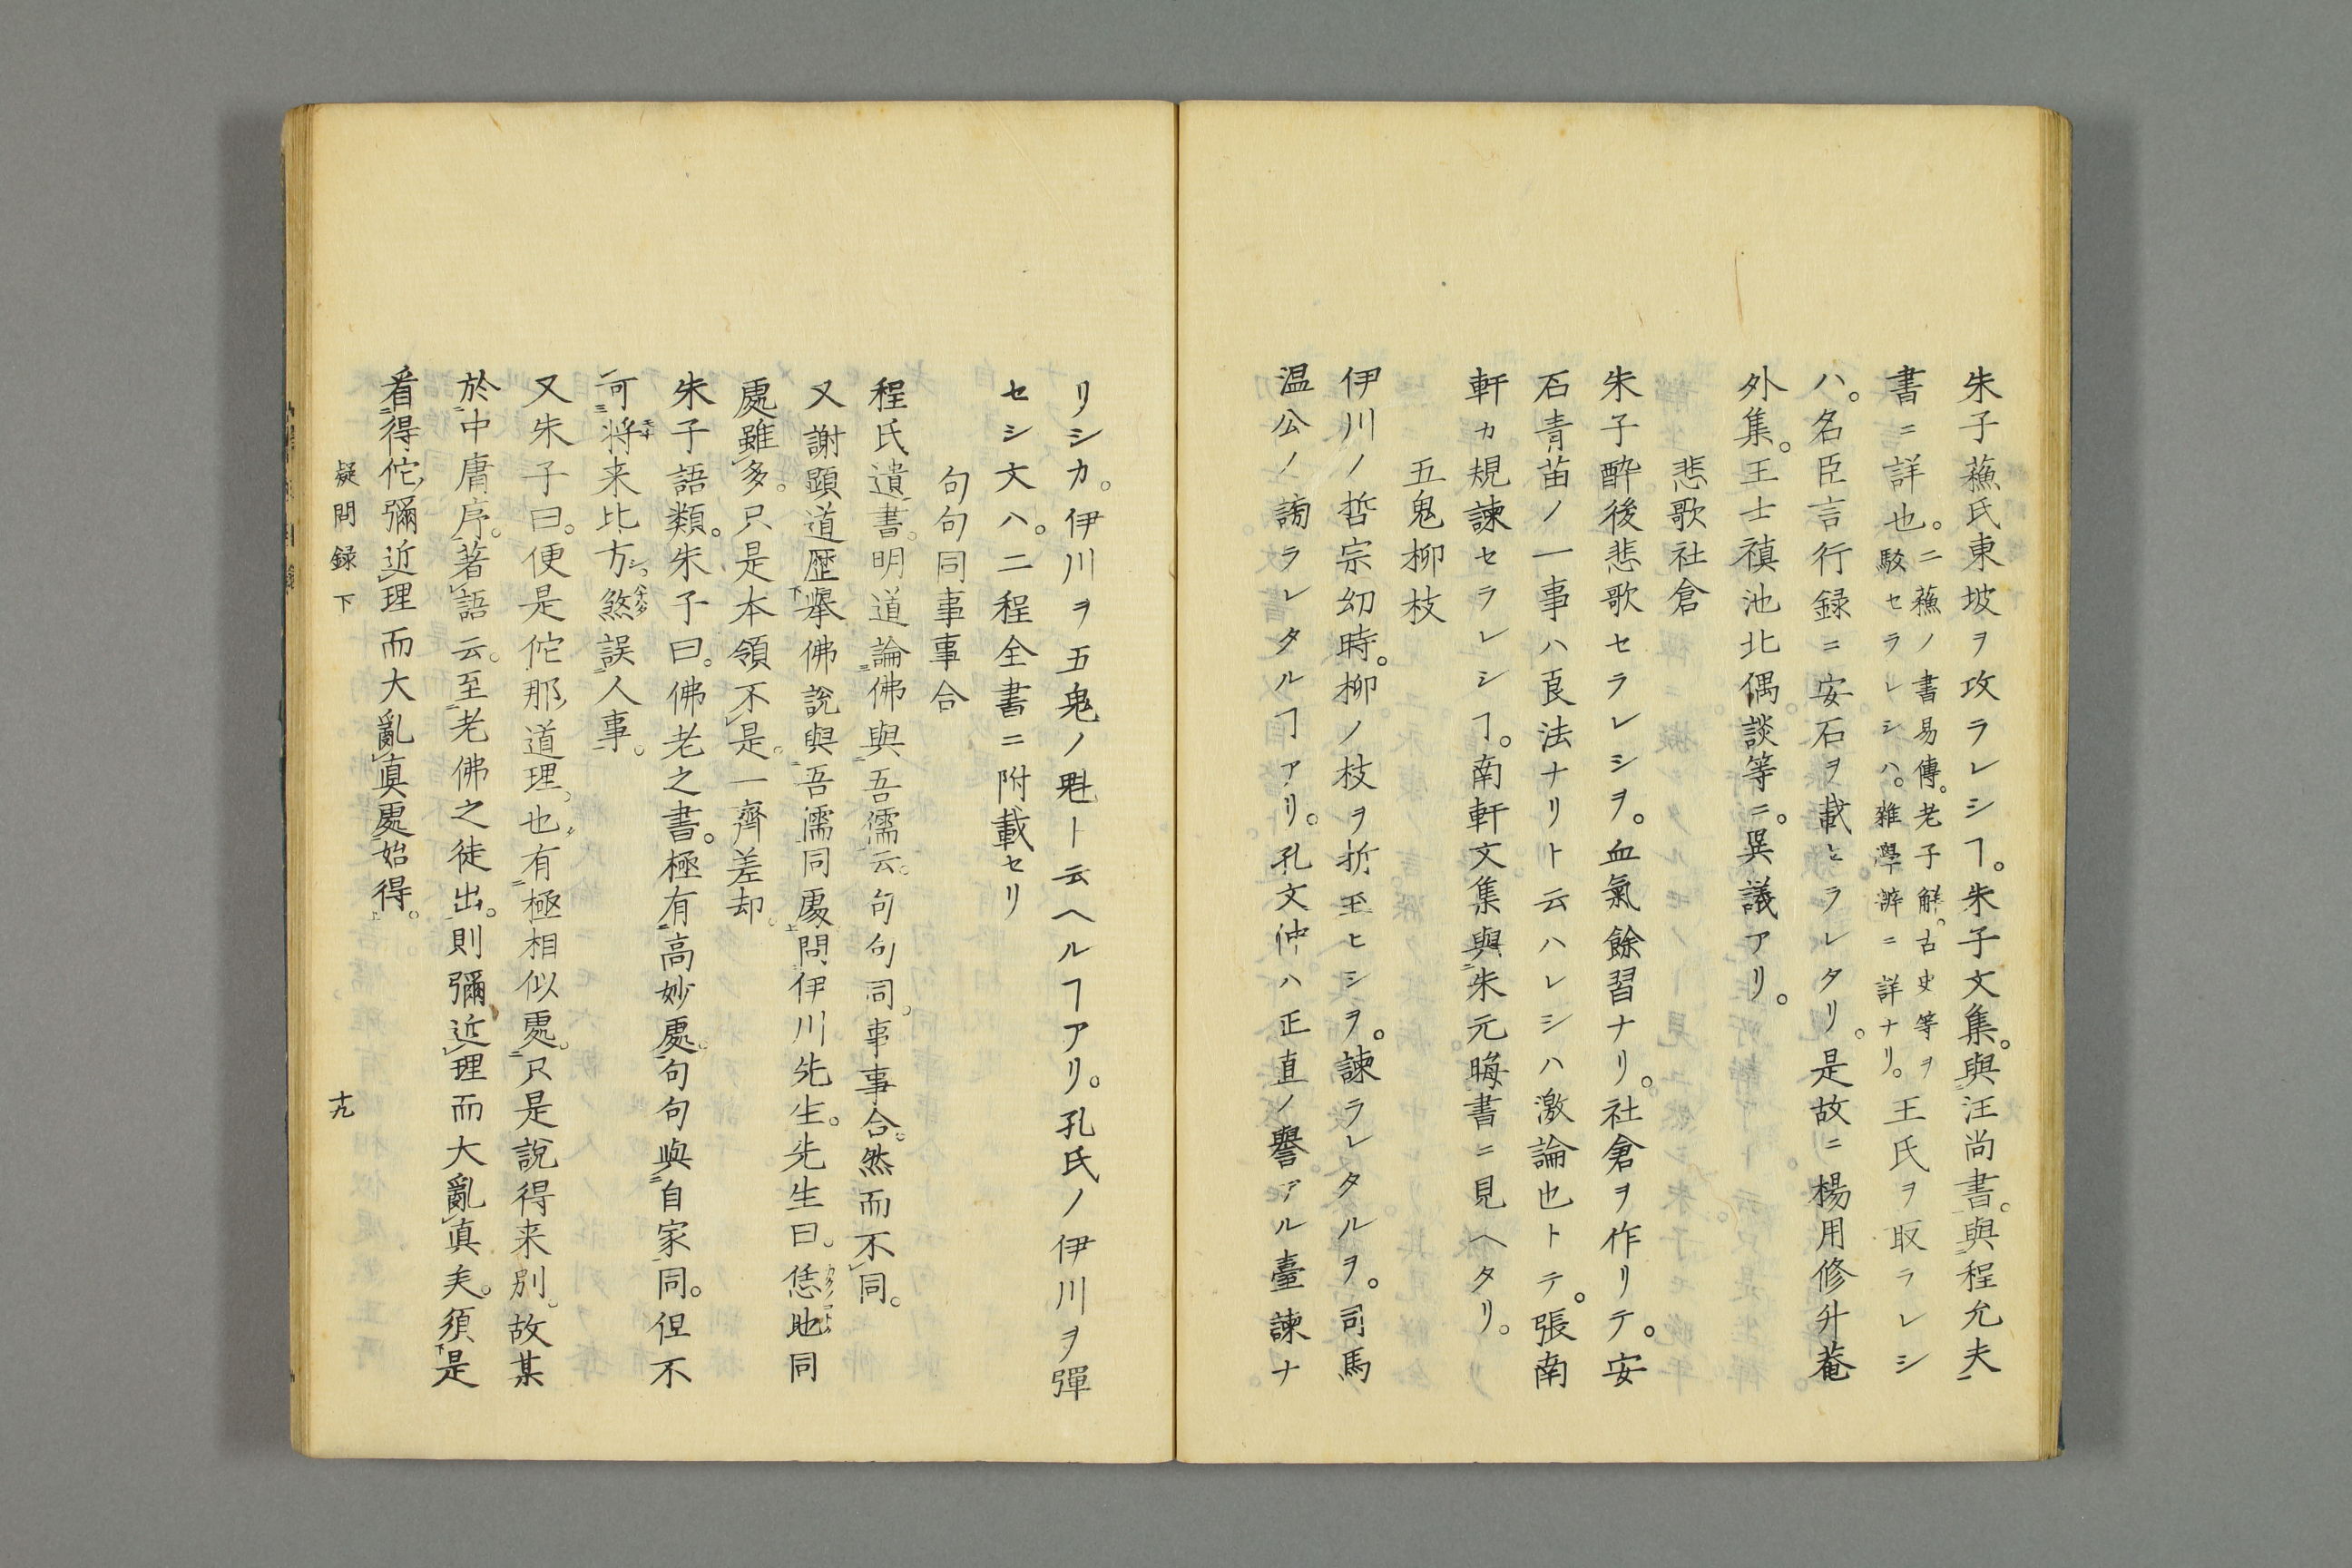 朱子蘓氏東坡ヲ攻ラレシヿ。朱子文集。與汪尚書。與程允夫
書ニ詳也。二蘓ノ書易傳。老子解。古史等ヲ
駁セラレシハ。雜學辨ニ詳ナリ。王氏ヲ取ラレシ
ハ。名臣言行録ニ安石ヲ載セラレタリ。是故ニ楊用修升菴
外集。王士禛池北偶談等ニ。異議アリ。
悲歌社倉
朱子醉後悲歌セラレシヲ。血氣餘習ナリ。社倉ヲ作リテ。安
石青苗ノ一事ハ良法ナリト云ハレシハ激論也トテ。張南
軒カ規諫セラレシヿ。南軒文集與朱元晦書ニ見ヘタリ。
五鬼柳枝
伊川ノ哲宗幻時。柳ノ枝ヲ折玉ヒシヲ。諫ラレタルヲ。司馬
温公ノ謗ラレタルヿアリ。孔文仲ハ正直ノ譽アル臺諫ナ
リシカ。伊川ヲ五鬼ノ魁ト云ヘルヿアリ。孔氏ノ伊川ヲ彈
セシ文ハ。二程全書ニ附載セリ
句句同事事合
程氏遺書。明道論佛與吾儒云。句句同。事事合。然而不同。
又謝顯道歴擧佛說與吾濡同處問伊川先生。先生曰。恁地同
處雖多。只是本領不是。一齊差却。
朱子語類。朱子曰。佛老之書。極有高妙處。句句與自家同。但不
可將来比方。煞誤人事。
又朱子曰。便是佗那道理也有極相似處。只是說得来別。故某
於中庸序。著語云。至老佛之徒出。則彌近理而大亂真矣。須是
看得佗彌近理而大亂真處始得。
疑問録 下
十九